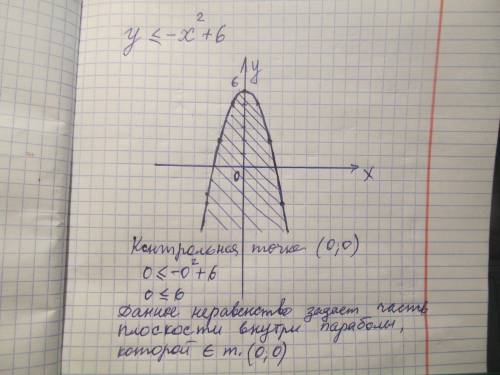 y ≤ -x² + 6
y
6
0
x
Контрольная точка (0,0)
0 ≤ -0² + 6
0 ≤ 6
Данное неравенство задаёт часть
плоскости внутри параболы,
которой ∈ т. (0,0)